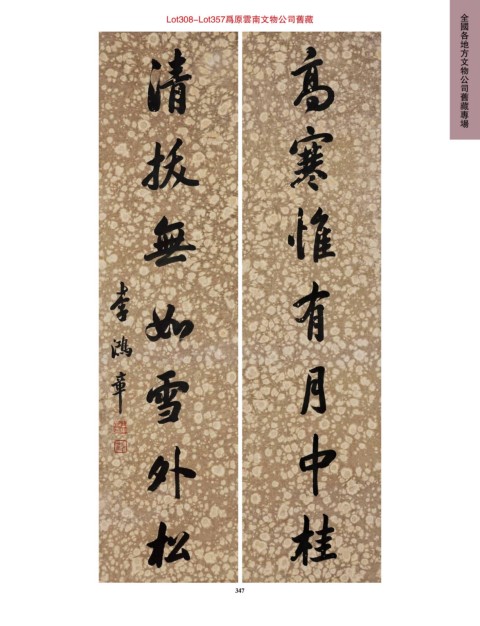 Lot308-Lot357爲原雲南文物公司舊藏
全國各地方文物公司舊藏專場
高寒惟有月中桂
清拔無如雪外松
李鴻章
347